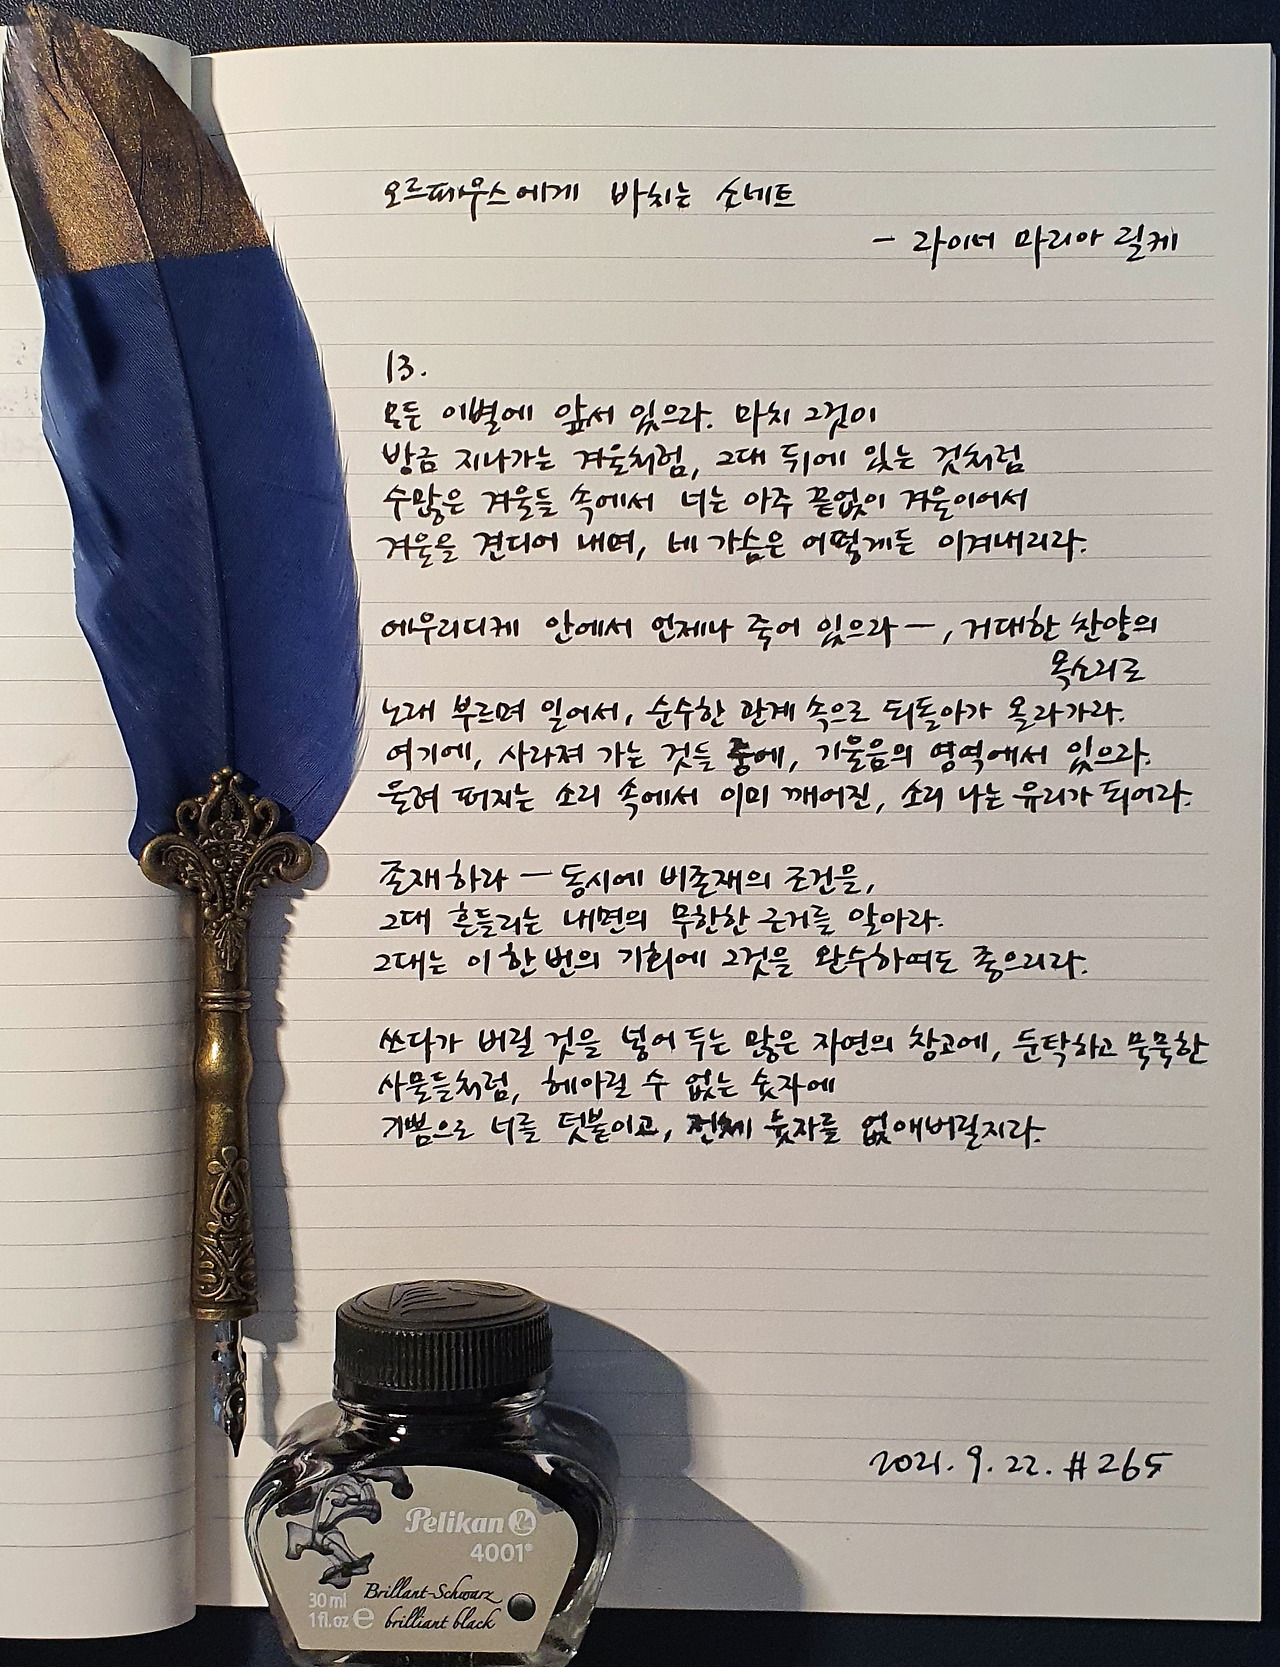 오르페우스에게 바치는 소네트
- 라이너 마리아 릴케
13.
모든 이별에 앞서 있으라. 마치 그것이
방금 지나가는 겨울처럼, 그대 뒤에 있는 것처럼
수많은 겨울들 속에서 너는 아주 끝없이 겨울이어서
겨울을 견디어 내며, 네 가슴은 어떻게든 이겨내리라.
에우리디케 안에서 언제나 죽어 있으라—, 거대한 찬양의
목소리로
노래 부르며 일어서, 순수한 관계 속으로 되돌아가 올라가라.
여기에, 사라져 가는 것들 중에, 기울음의 영역에서 있으라.
울려 퍼지는 소리 속에서 이미 깨어진, 소리 나는 유리가 되어라.
존재하라 — 동시에 비존재의 조건을,
그대 흔들리는 내면의 무한한 근거를 알아라.
그대는 이 한 번의 기회에 그것을 완수하여도 좋으리라.
쓰다가 버릴 것을 넣어 두는 많은 자연의 창고에, 둔탁하고 묵묵한
사물들처럼, 헤아릴 수 없는 숫자에
기쁨으로 너를 덧붙이고, 전체 숫자를 없애버릴지라.
2021. 9. 22. #265
Pelikan
4001®
30 ml Brillant-Schwarz
1 fl.oz e brilliant black